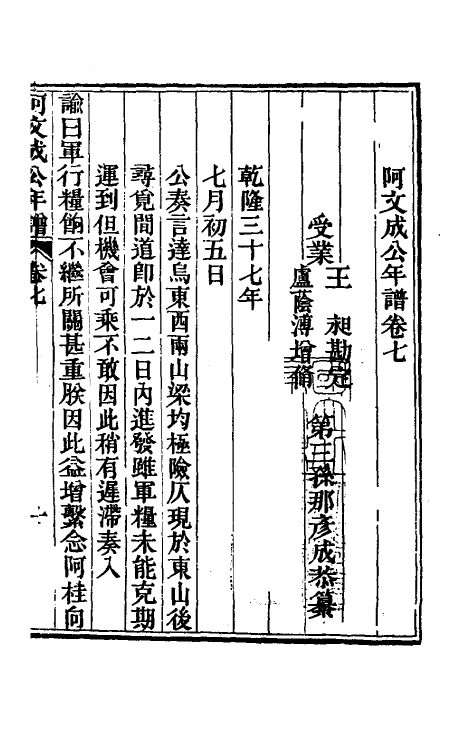 阿文成公年譜卷七
受業王昶勘定
盧蔭溥增修
第三孫那彥成恭纂
乾隆三十七年
七月初五日
公奏言達烏東西兩山梁均極險仄現於東山後
尋覓間道卽於一二日內進發雖軍糧未能克期
運到但機會可乘不敢因此稍有遲滯奏入
諭曰軍行糧餉不繼所關甚重朕因此益增繫念阿桂向
阿文成公年譜 卷七 一